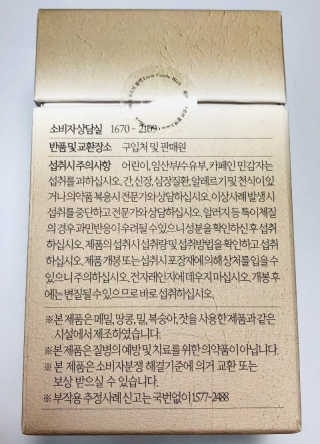 소비자상담실 1670 - 2109
반품 및 교환장소 구입처 및 판매원
섭취시 주의사항 어린이, 임산부/수유부, 카페인 민감자는
섭취를 피하십시오. 간, 신장, 심장질환, 알레르기 및 천식이 있
거나 의약품 복용시 전문가와 상담하십시오. 이상사례 발생시
섭취를 중단하고 전문가와 상담하십시오. 알러지 등 특이체질
의 경우 과민반응이 우려될 수 있으니 성분을 확인하신 후 섭취
하십시오. 제품의 섭취시 섭취량 및 섭취방법을 확인하고 섭취
하십시오. 제품 개봉 또는 섭취시 포장재에 의해 상처를 입을 수
있으니 주의하십시오. 전자레인지에 데우지 마십시오. 개봉 후
에는 변질될 수 있으므로 바로 섭취하십시오.
※ 본 제품은 메밀, 땅콩, 밀, 복숭아, 잣을 사용한 제품과 같은
시설에서 제조하였습니다.
※ 본 제품은 질병의 예방 및 치료를 위한 의약품이 아닙니다.
※ 본 제품은 소비자분쟁 해결기준에 의거 교환 또는
보상 받으실 수 있습니다.
※ 부작용 추정사례 신고는 국번없이 1577-2488